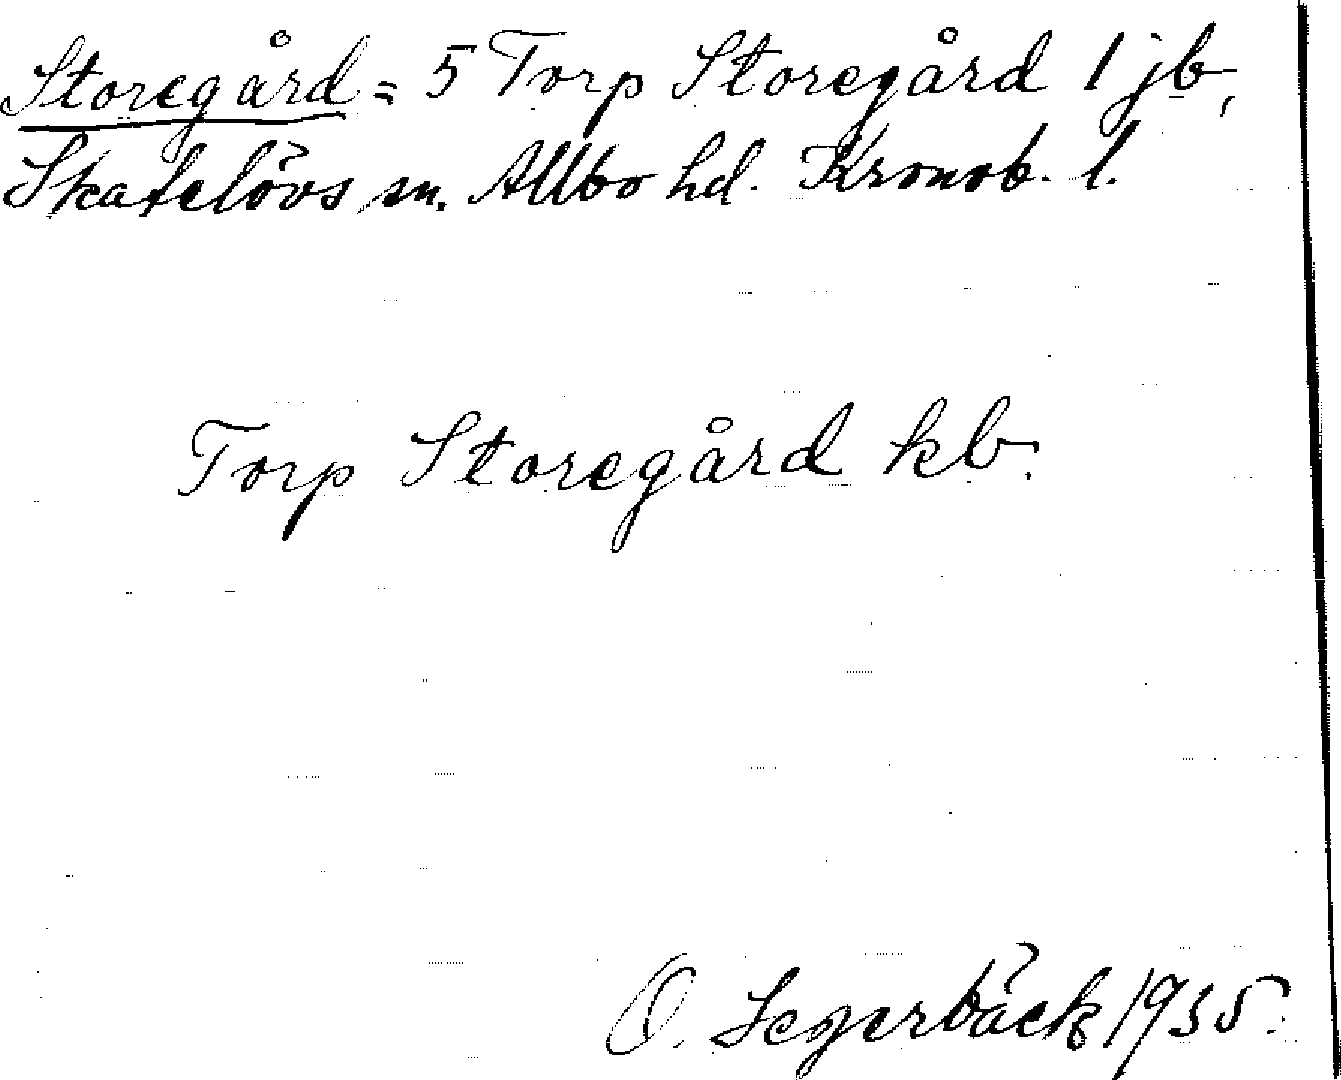 Storegård = 5 Torp Storegård 1 jb,
Skatelövs sn. Allbo hd. Kronob. l.
Torp Storegård kb.
O. Segerbäck 1935.